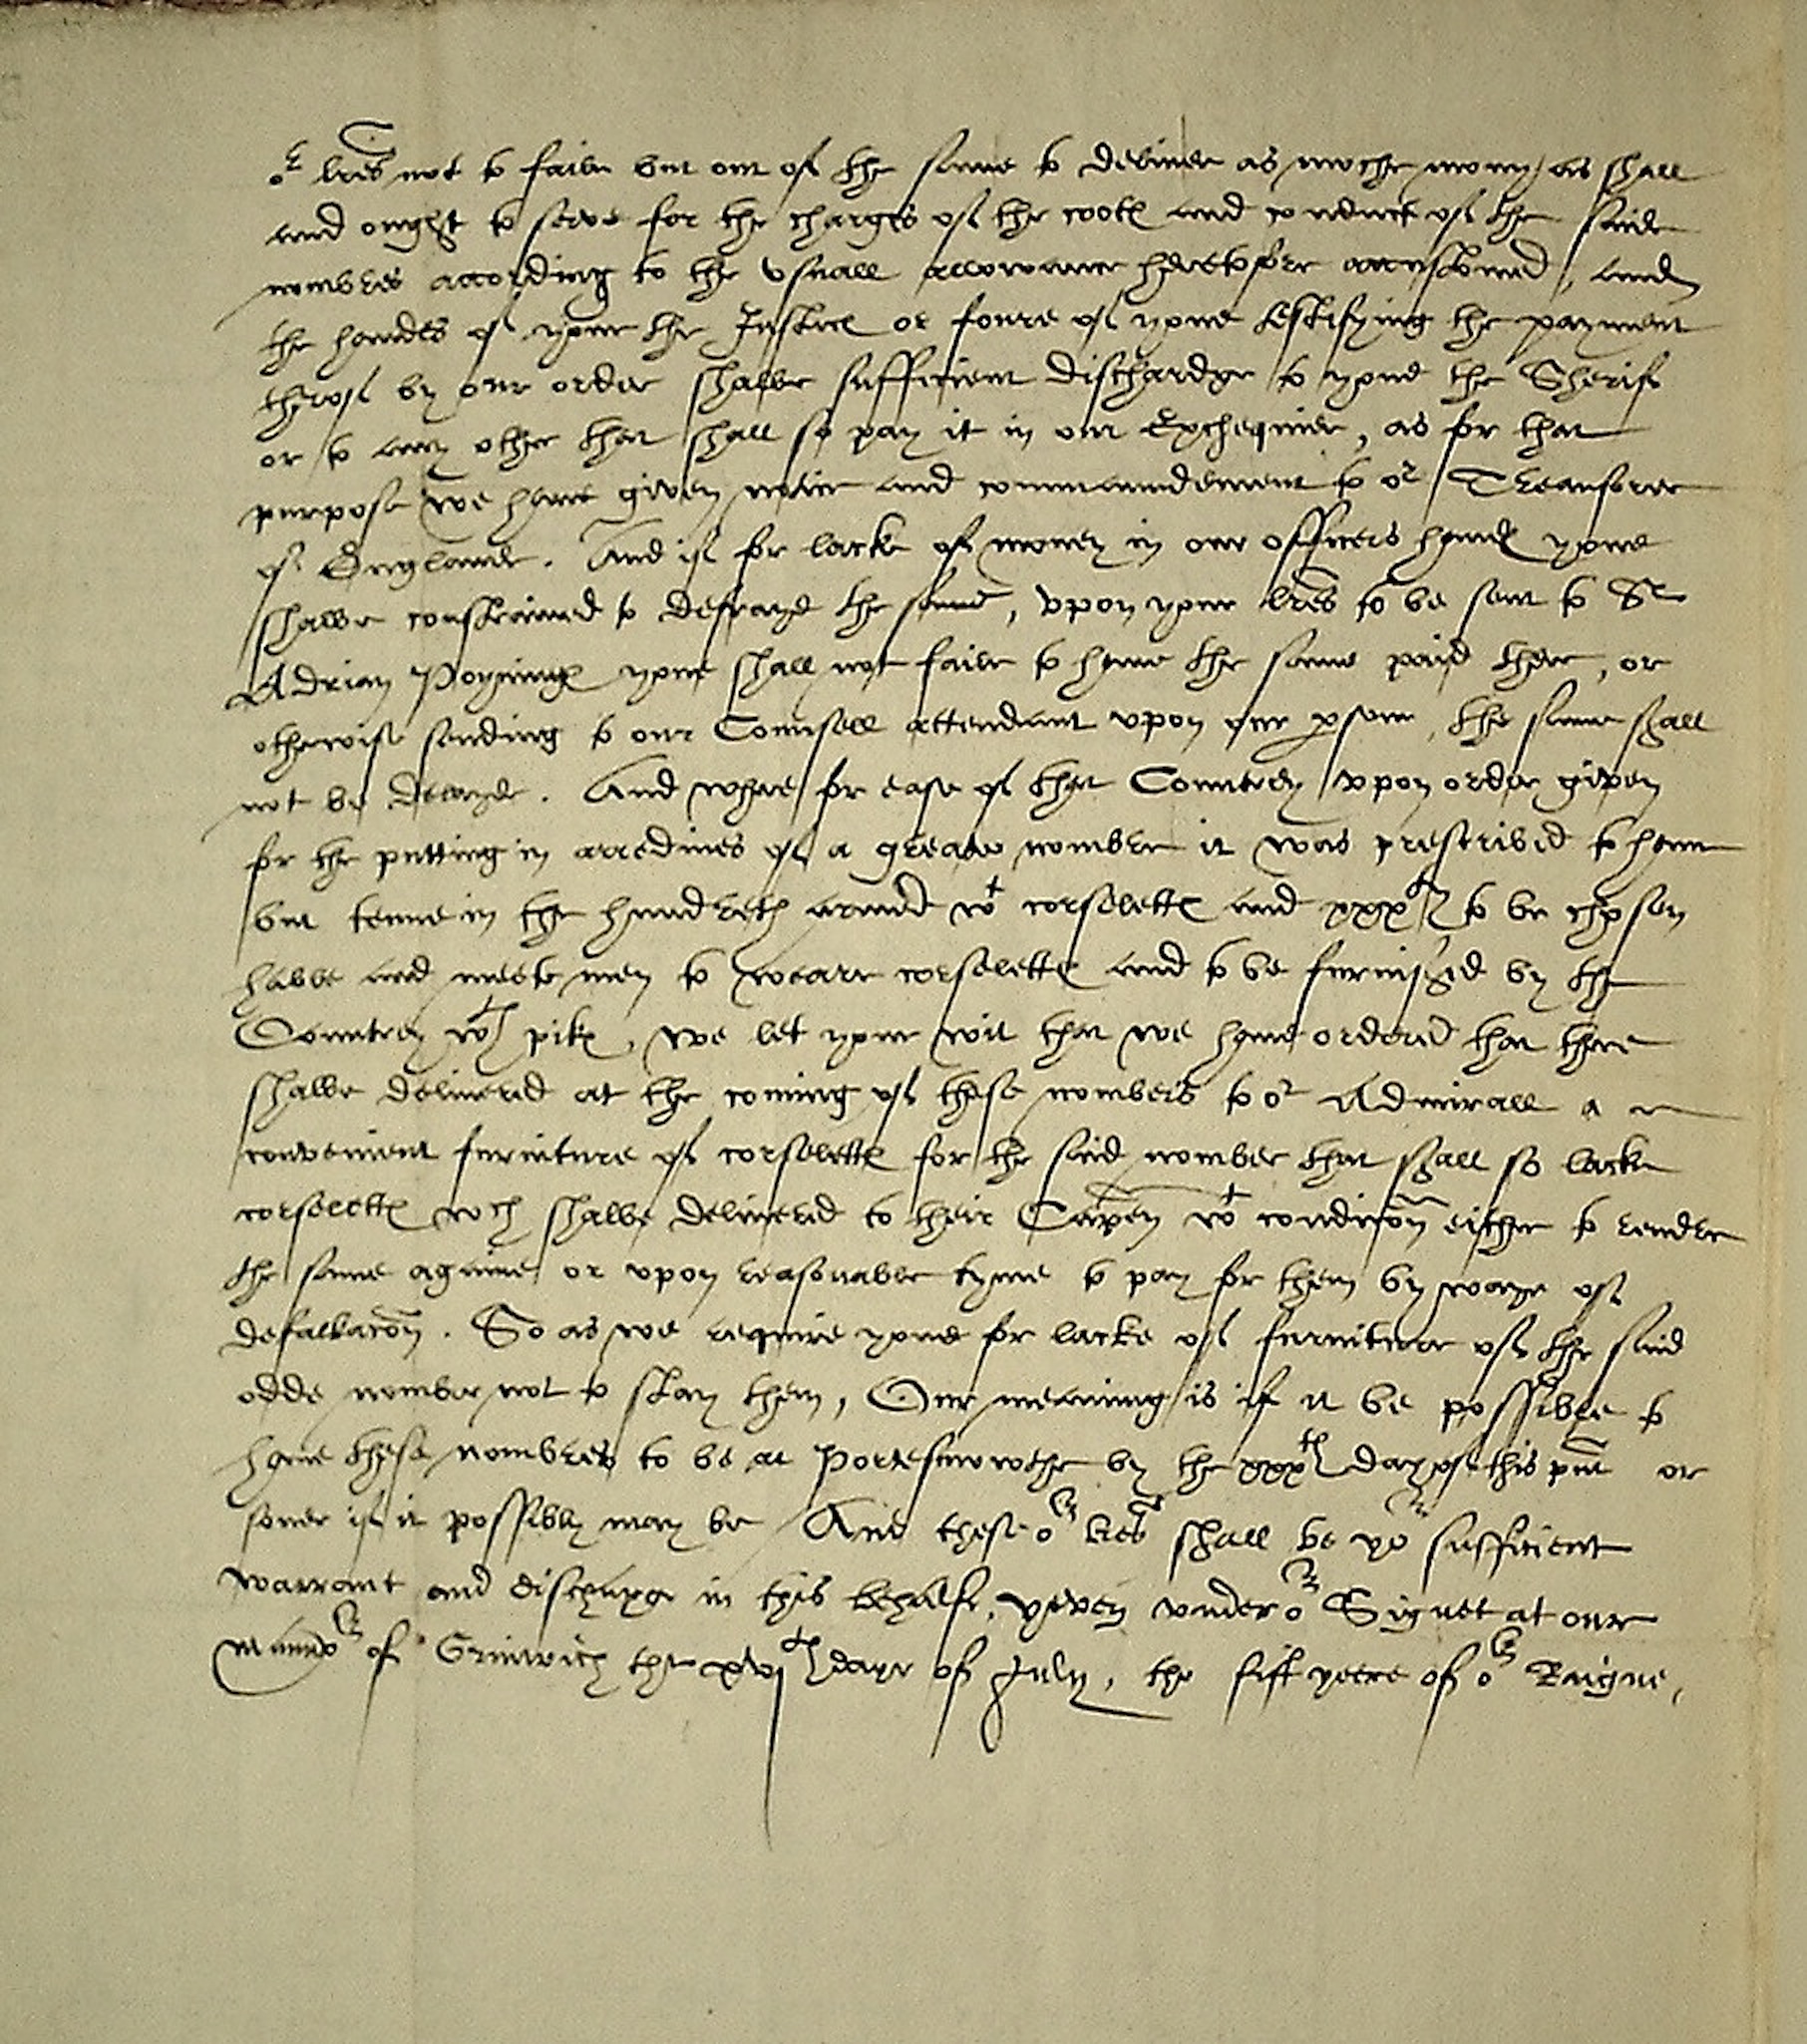 or lres not to faile but out of the same to deliver as moche mony as shall
and ought to serve for the charges of the cotes and conduct of the saide
nombres according to the usuall allowaunce heretofore accustomed, and
the handes of youe the Justices or foure of youe testifying the payment
therof by our order shalbe sufficient dischardge to youe the Sherife
or to any other that shall so pay it in our Exchequier, as for that
purpose we have given notice and commaundement to or Treasorer
of Englande. And if for lacke of money in our officers handes youe
shalbe constrained to defraye the same, upon your lres to be sent to Sr
Adrian Poyninges youe shall not faile to have the same paid there, or
otherwise sending to our Counsell attendant upon our pson, the same shall
not be delayde. And where for ease of that Countrey upon order given
for the putting in aredines of a greater nomber it was prescribed to have
but tenne in the hundreth armed wt corselettes and xxxty to be chosen
hable and meete men to weare corselettes and to be furnished by the
Countrey wth pikes, we let youe wit that we have ordered that there
shalbe delivered at the coming of these nombers to or Admirall a
convenient furniture of corselettes for the said nomber that shall so lacke
corselettes wch shalbe delivered to their Capen wt condicon either to render
the same againe or upon reasonable tyme to pay for them by waye of
defalkacon. So as we require youe for lacke of furniture of the said
odde nomber not to stay them, Our meaning is if it be possible to
have these nombres to be at Portesmowthe by the xxxth day of this pnt or
soner if it possibly may be And these or lres shall be yor sufficient
warrant and discharge in this behalfe, yeven under or Signet at our
mannor of Grinwich the xvjth daye of July, the fift yeere of or Raigne,